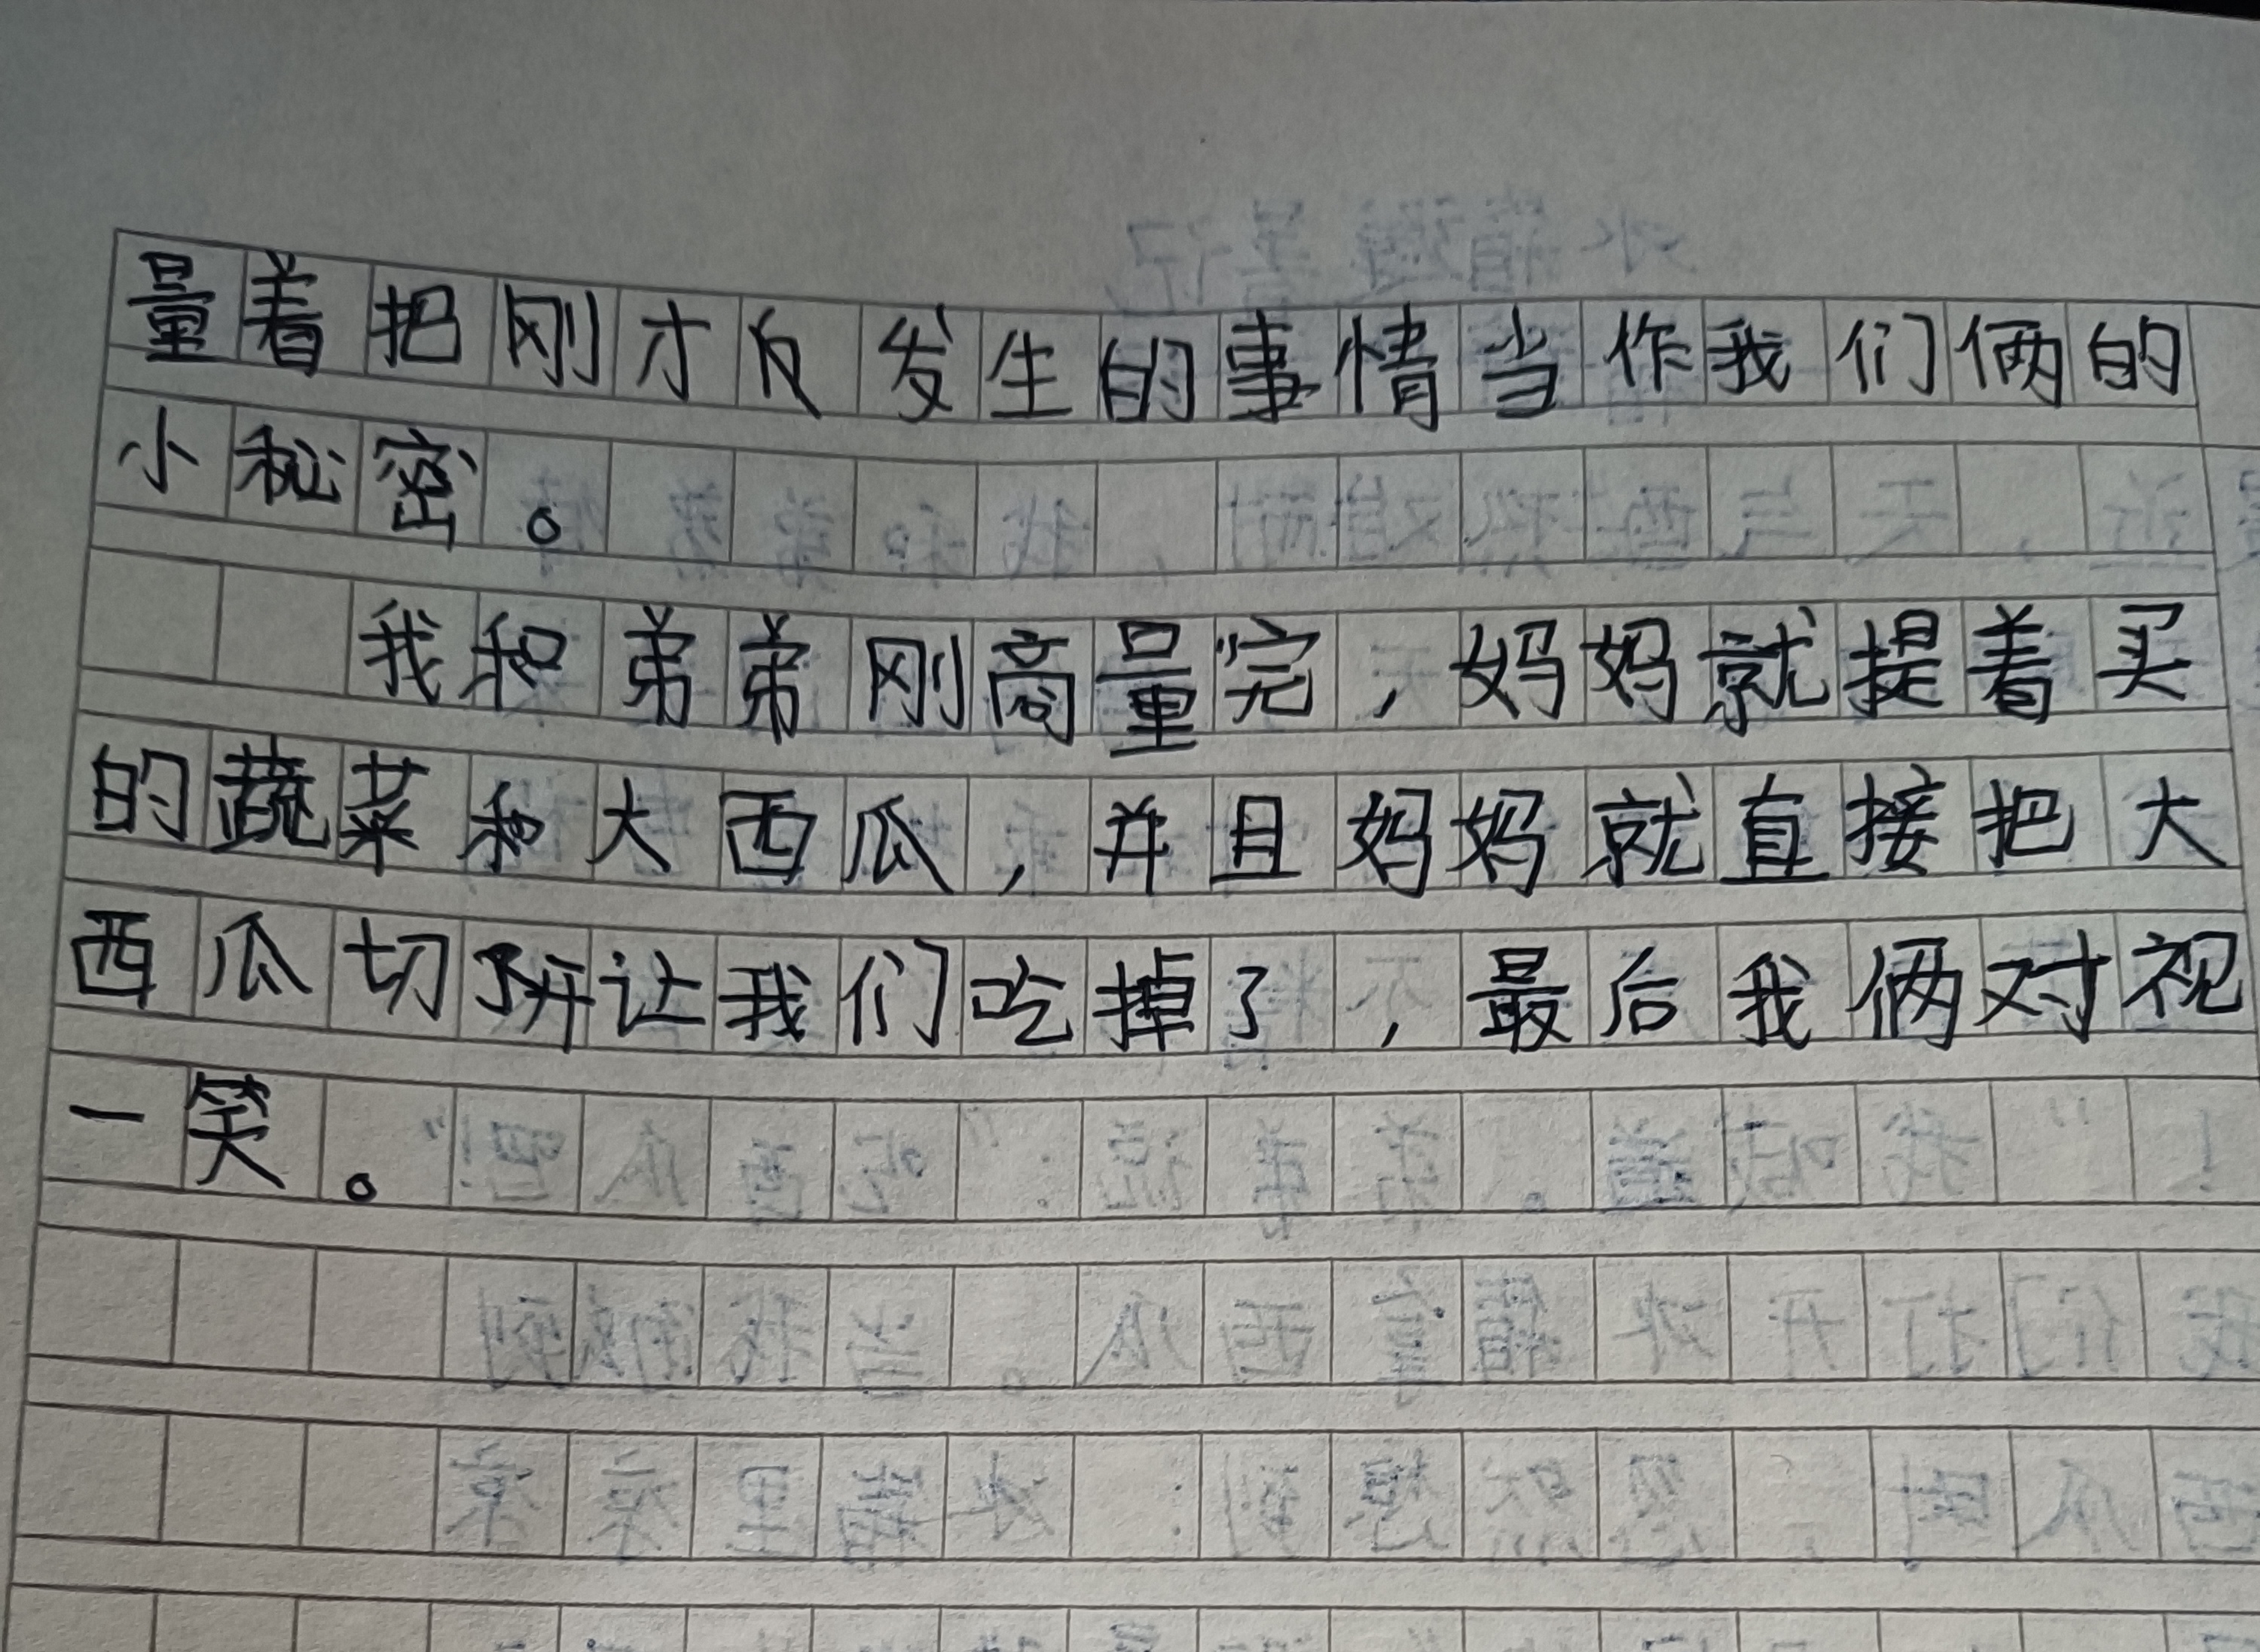 量着把刚才反发生的事情当作我们俩的
小秘密。
我和弟弟刚商量完，妈妈就提着买
的蔬菜和大西瓜，并且妈妈就直接把大
西瓜切开让我们吃掉了，最后我俩对视
一笑。